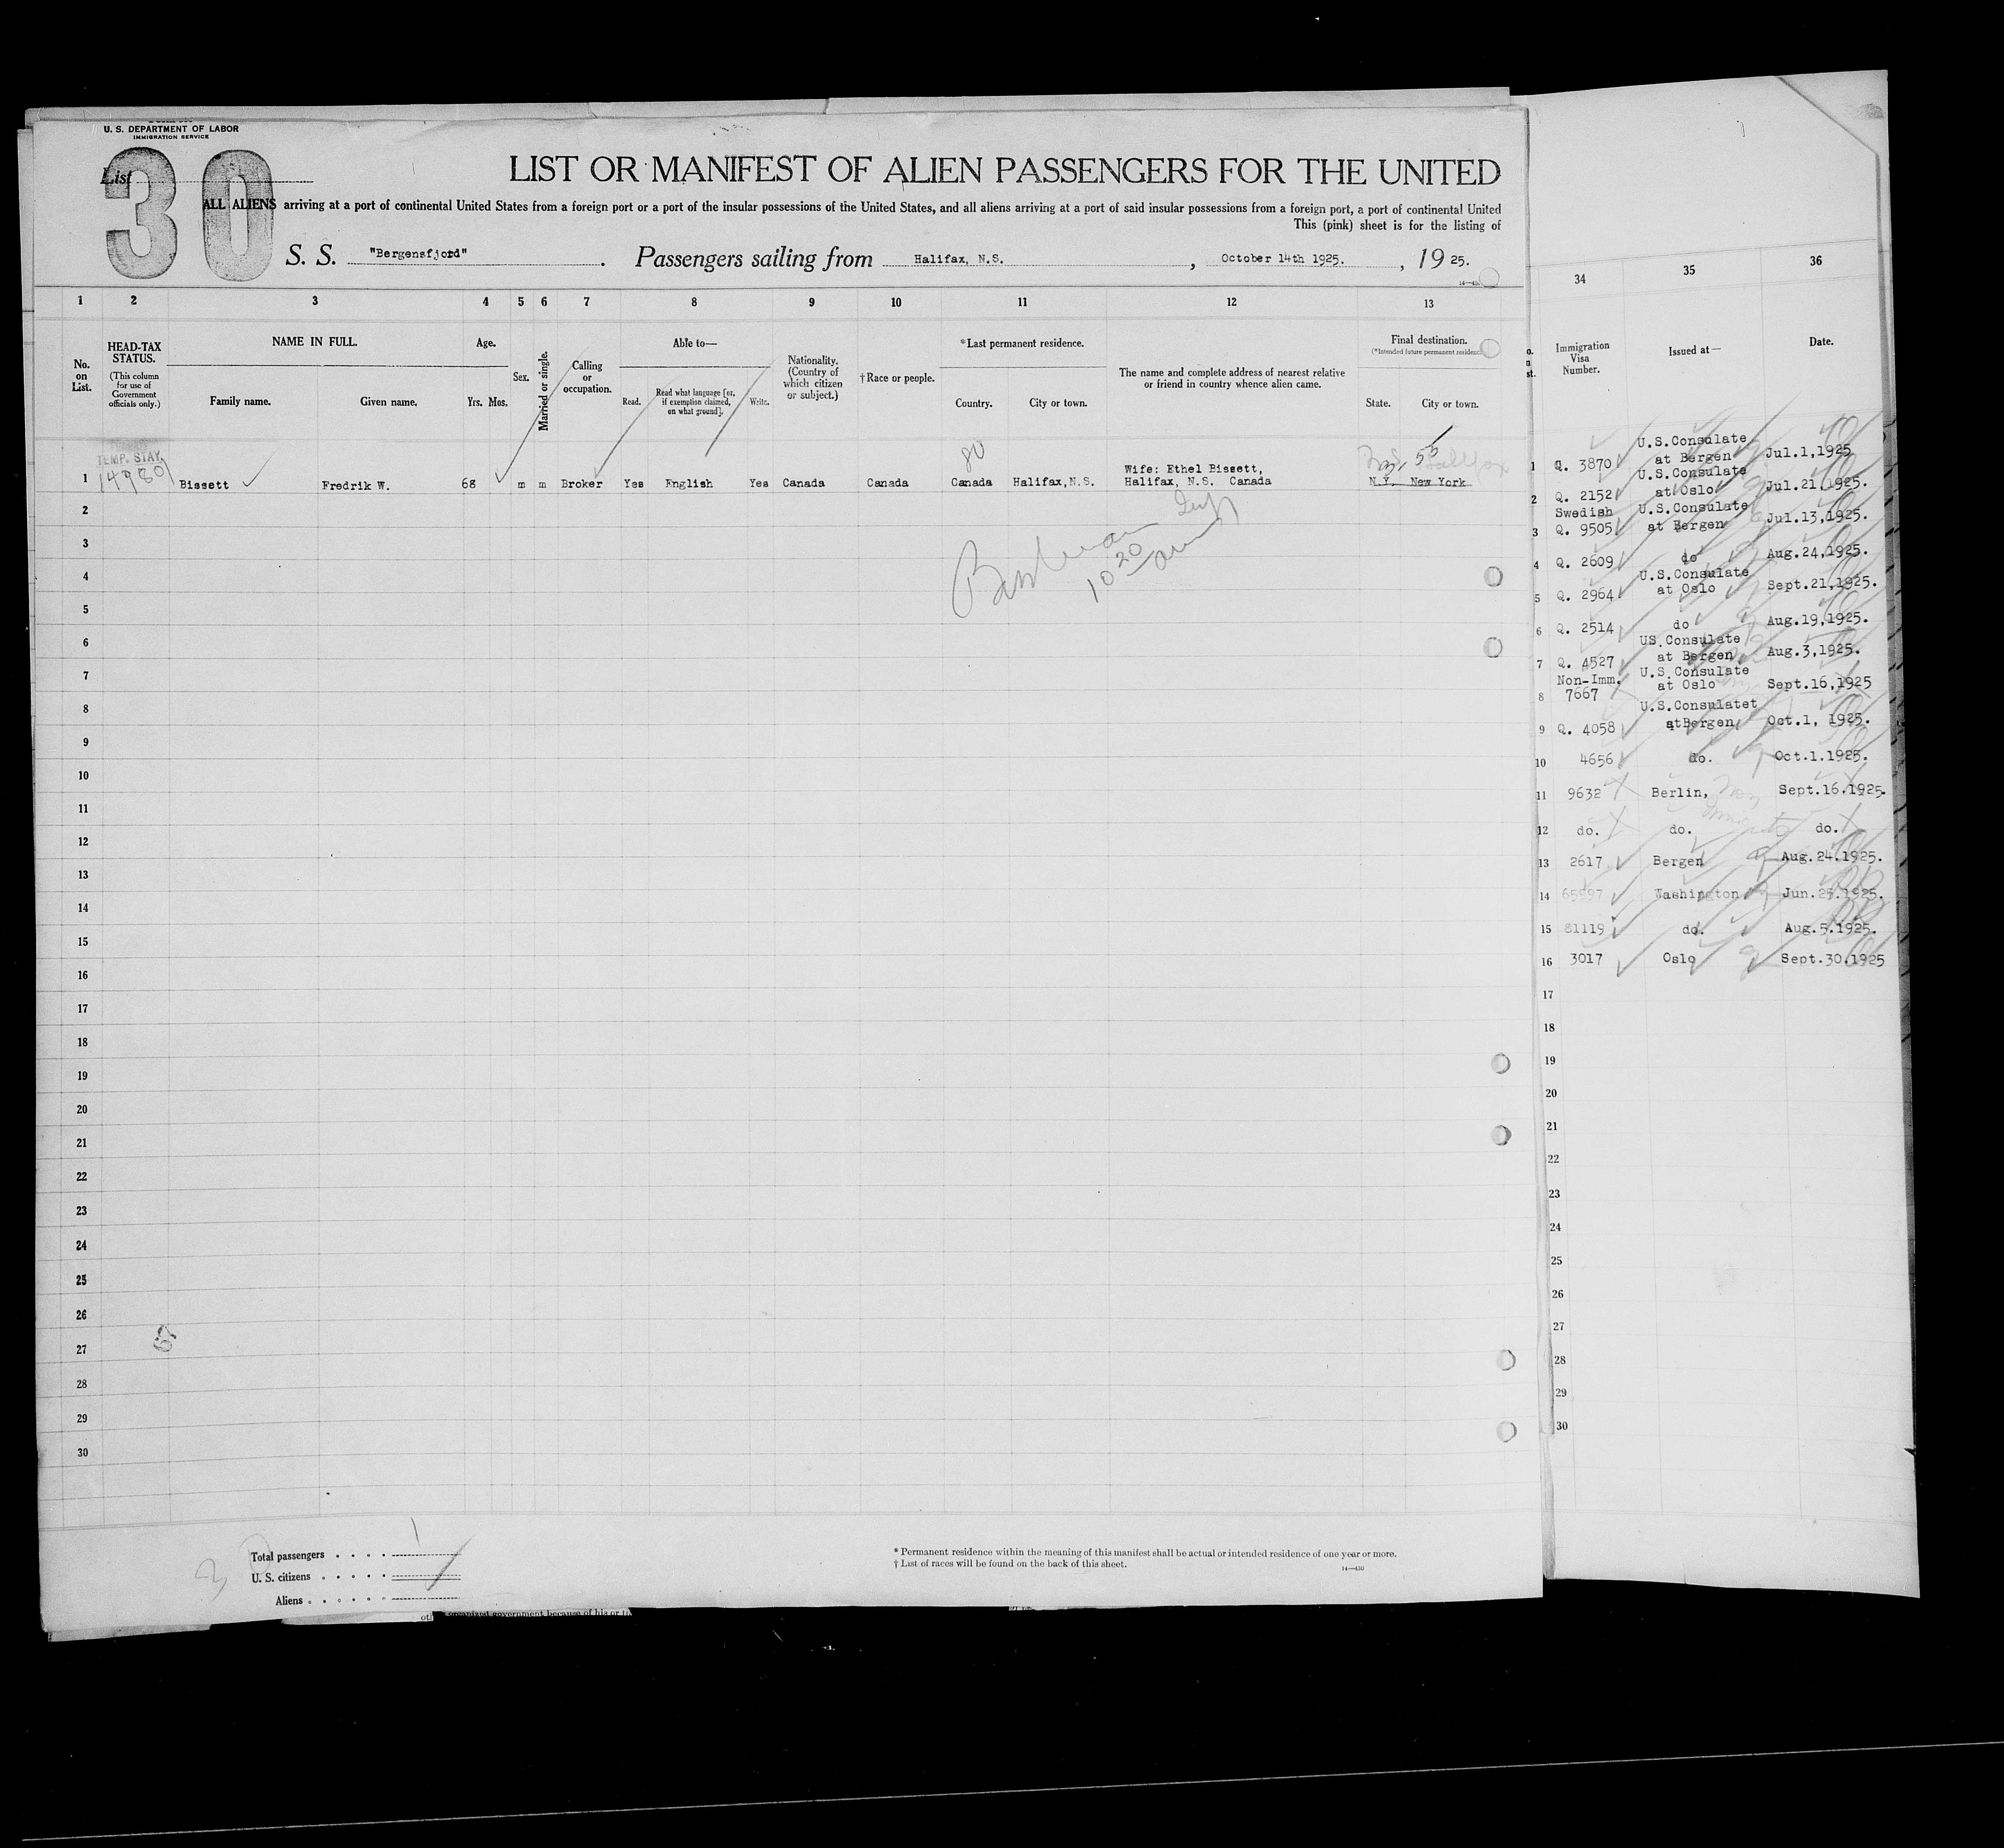 U. S. DEPARTMENT OF LABOR
IMMIGRATION SERVICE
List
30
LIST OR MANIFEST OF ALIEN PASSENGERS FOR THE UNITED
ALL ALIENS arriving at a port of continental United States from a foreign port or a port of the insular possessions of the United States, and all aliens arriving at a port of said insular possessions from a foreign port, a port of continental United
This (pink) sheet is for the listing of
S. S. "Bergensfjord" . Passengers sailing from Halifax, N.S. , October 14th 1925. , 19 25.
1 2 3 4 5 6 7 8 9 10 11 12 13
No. on List.
HEAD-TAX STATUS.
(This column for use of Government officials only.)
NAME IN FULL.
Family name. Given name.
Age.
Yrs. Mos.
Sex.
Married or single.
Calling or occupation.
Able to—
Read. Read what language [or, if exemption claimed, on what ground]. Write.
Nationality. (Country of which citizen or subject.)
†Race or people.
*Last permanent residence.
Country. City or town.
The name and complete address of nearest relative or friend in country whence alien came.
Final destination.
(*Intended future permanent residence
State. City or town.
TEMP. STAY
80
Wife: Ethel Bissett,
1 Bissett Fredrik W. 68 m m Broker Yes English Yes Canada Canada Canada Halifax,N.S. Halifax, N.S. Canada N.Y. New York
2
3
10 20
4
5
6
7
8
9
10
11
12
13
14
15
16
17
18
19
20
21
22
23
24
25
26
27
28
29
30
Total passengers 1
U. S. citizens
Aliens
* Permanent residence within the meaning of this manifest shall be actual or intended residence of one year or more.
† List of races will be found on the back of this sheet.
14—430
34 35 36
Immigration Visa Number. Issued at— Date.
U.S.Consulate
1 Q. 3870 at Bergen Jul.1,1925
U.S.Consulate
2 Q. 2152 at Oslo Jul.21,1925.
Swedish U.S.Consulate
3 Q. 9505 at Bergen Jul.13,1925.
4 Q. 2609 do Aug.24,1925.
U.S.Consulate
5 Q. 2964 at Oslo Sept.21,1925.
6 Q. 2514 do Aug.19,1925.
US.Consulate
7 Q. 4527 at Bergen Aug.3,1925.
Non-Imm. U.S.Consulate
8 7667 at Oslo Sept.16,1925
U.S.Consulatet
9 Q. 4058 atBergen Oct.1, 1925.
10 4656 do. Oct.1.1925.
11 9632 Berlin, Sept.16.1925.
12 do. do. do.
13 2617 Bergen Aug.24.1925.
14 65597 Washington Jun.25.1925.
15 81119 do. Aug.5.1925.
16 3017 Oslo Sept.30.1925
17
18
19
20
21
22
23
24
25
26
27
28
29
30